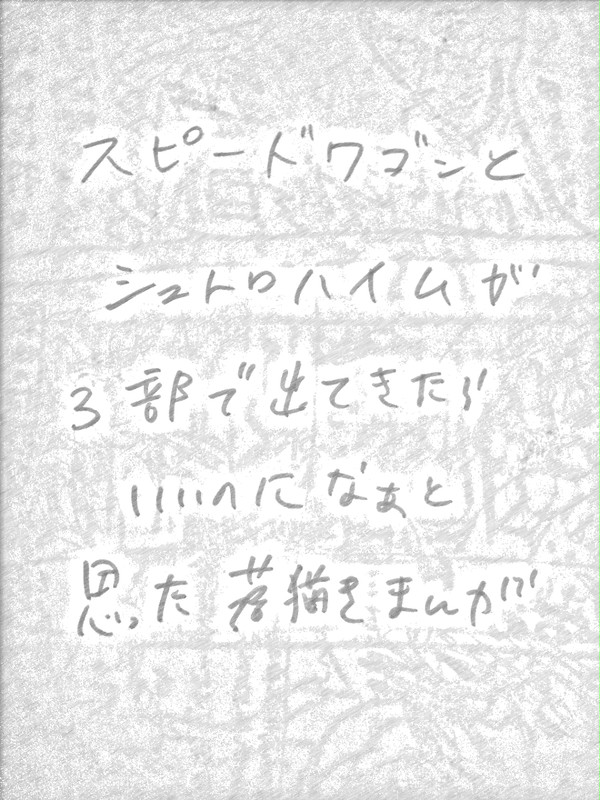 スピードワゴンと
シュトロハイムが
3部で出てきたら
いいのになぁと
思った落描きまんが